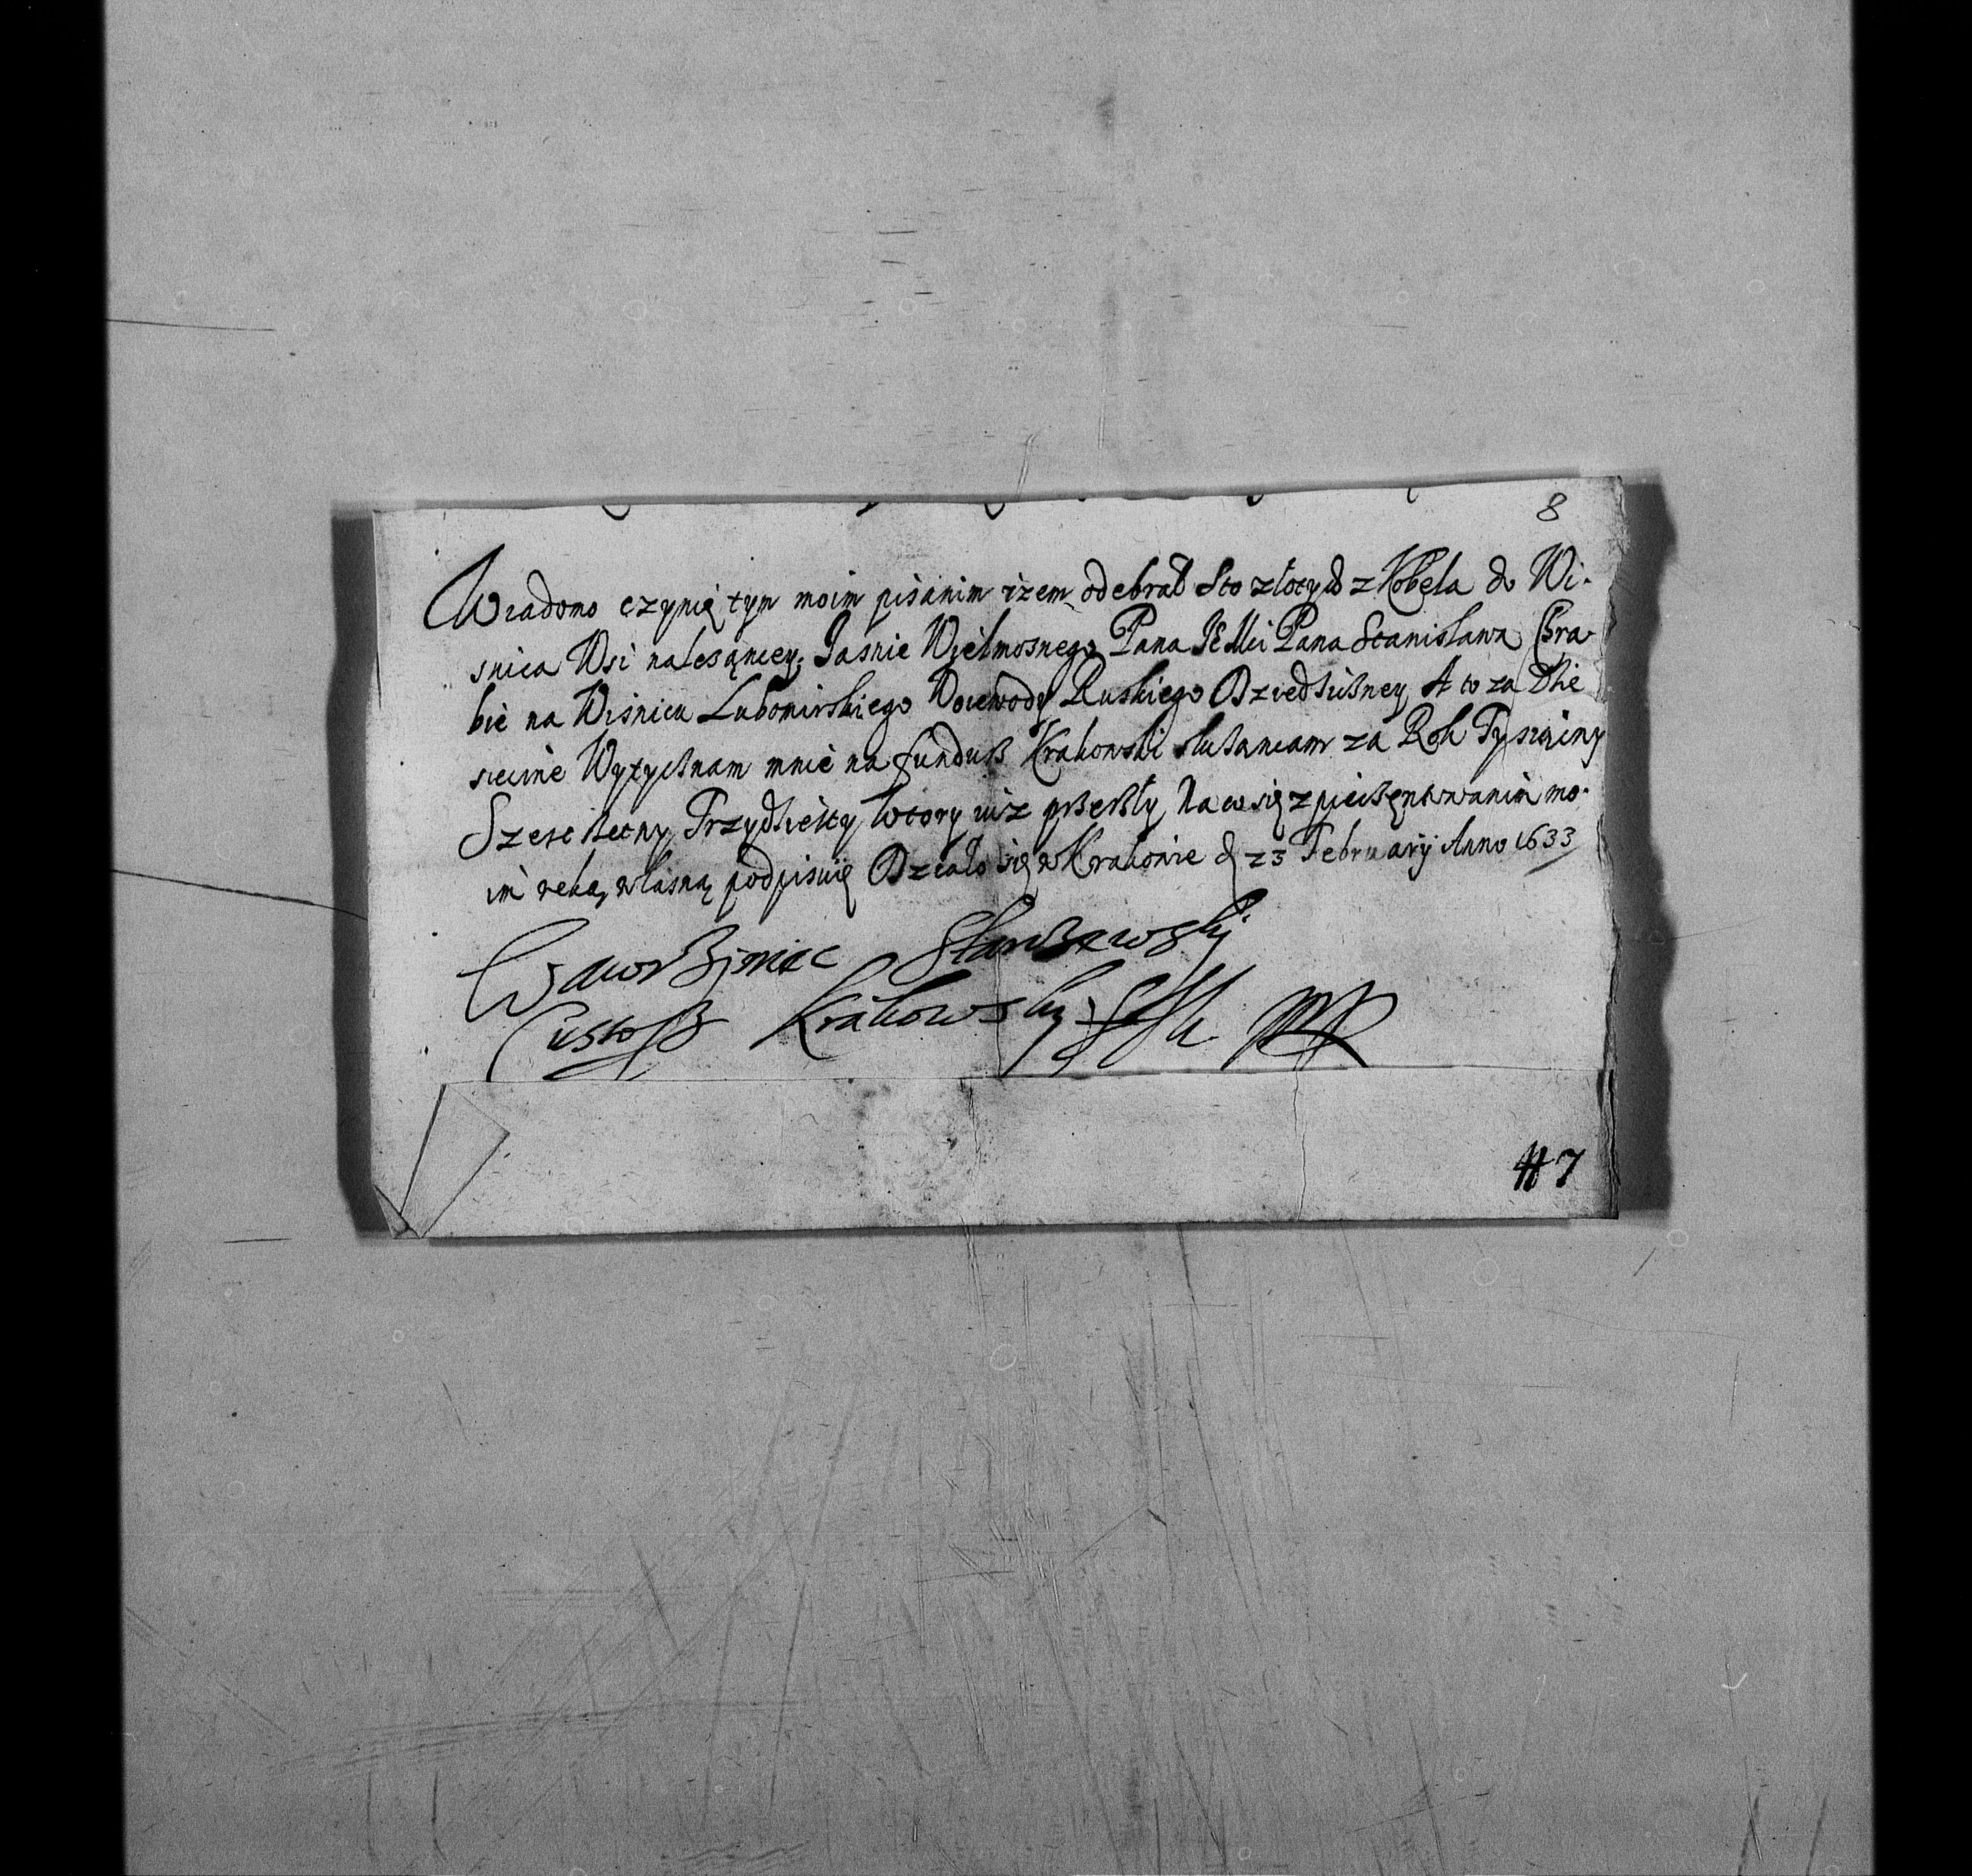 8
Wiadomo czynię tym moim pisanim iżem odebrał Sto złotych z Kobela do Wi-
snica Wsi nalesącey, Jasnie Wielmosnego Pana JEMci Pana Stanisława Hra-
bie na Wisniczu Lubomirskiego Woiewody Ruskiego Dziedziczney A to za Dzie
sięcinę Wytyczną mnie na fundusz Krakowski za Rok Tysiączny
Szescsetny Trzydziesty wtory iuż przeszły, Na co się z pieczętowanim mo-
im ręką własną podpisuię Działo się w Krakowie d 23 February Anno 1633
Wawrziniec Starszewskj
Custosz Krakowsky
#7